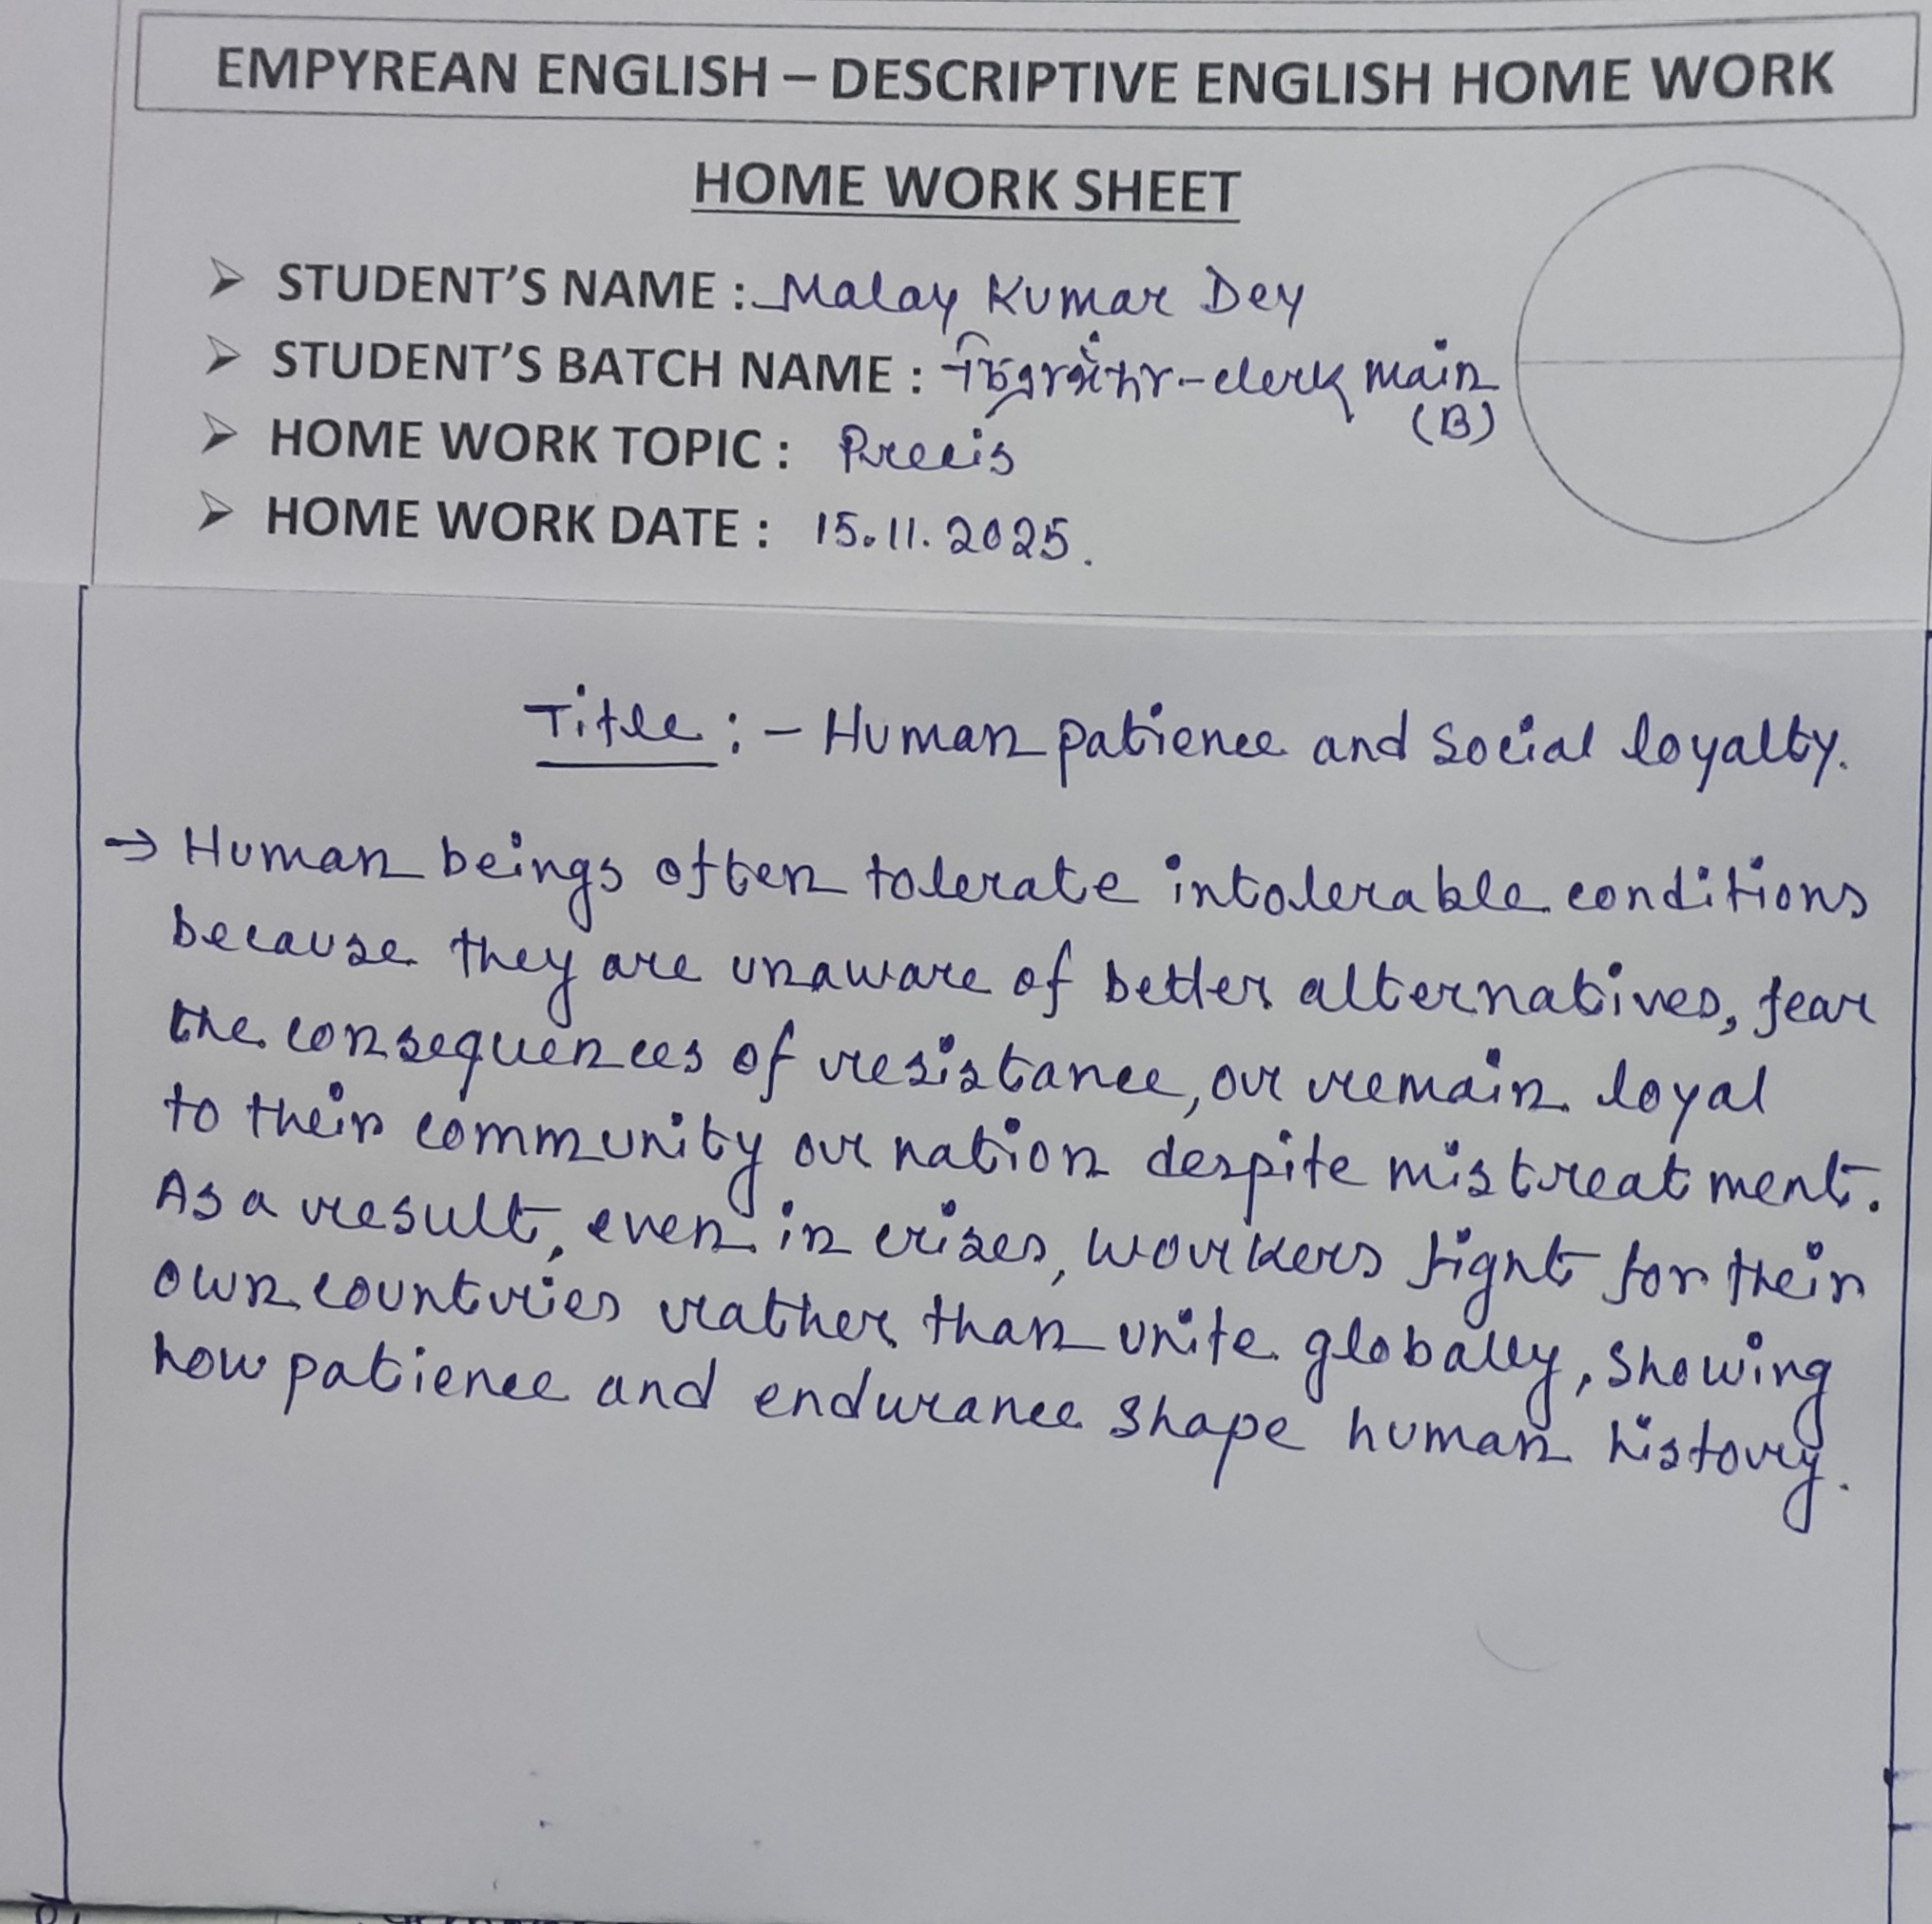 EMPYREAN ENGLISH – DESCRIPTIVE ENGLISH HOME WORK
HOME WORK SHEET
➤ STUDENT'S NAME : Malay Kumar Dey
➤ STUDENT'S BATCH NAME : -clerk main
(B)
➤ HOME WORK TOPIC : Precis
➤ HOME WORK DATE : 15.11.2025.
Title :- Human patience and social loyalty.
→ Human beings often tolerate intolerable conditions
because they are unaware of better alternatives, fear
the consequences of resistance, or remain loyal
to their community or nation despite mistreatment.
As a result, even in crises, workers fight for their
own countries rather than unite globally, showing
how patience and endurance shape human history.